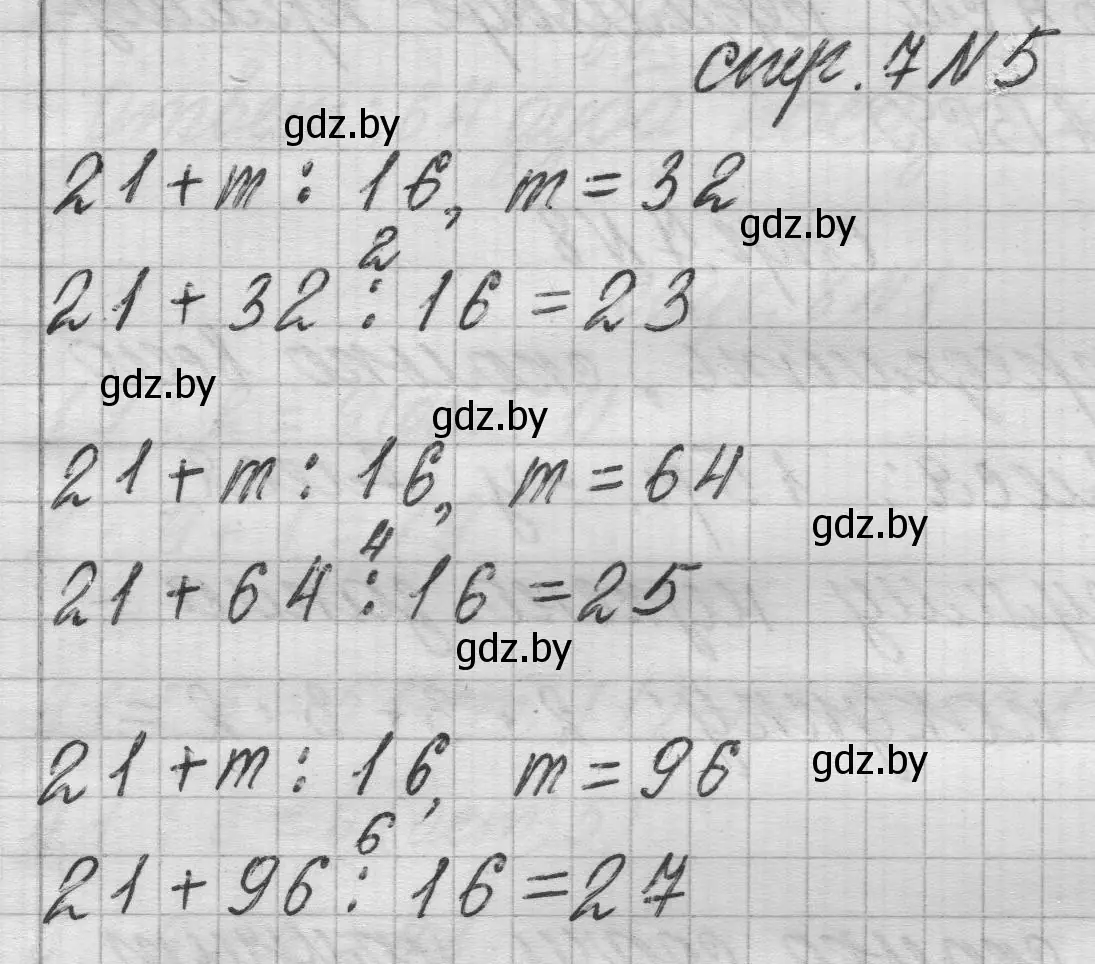 стр. 7 N 5
gdz.by
21 + m : 16, m = 32
gdz.by
2
21 + 32 : 16 = 23
gdz.by
gdz.by
21 + m : 16, m = 64
gdz.by
4
21 + 64 : 16 = 25
gdz.by
21 + m : 16, m = 96
gdz.by
6
21 + 96 : 16 = 27